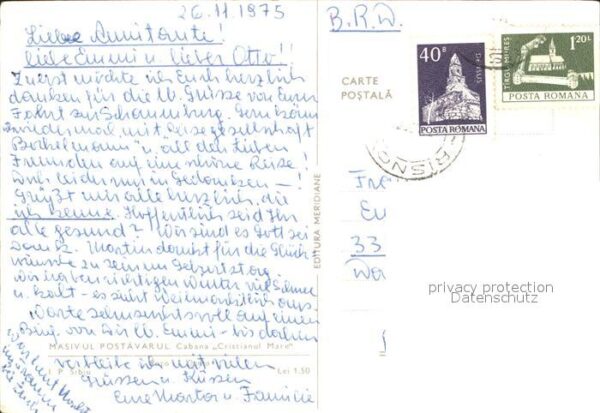 26.11.1975
Liebe Annitante!
liebe Emmi u. lieber Otto!!
Zuerst möchte ich Euch herzlich
danken für die lb. Grüsse von Eurer
Fahrt zur Schaumburg. Gern
wieder mal mit "Reisegesellschaft
" u. all den lieben
Freunden auf eine schöne Reise!
Doch leider nur in Gedanken –!
Grüßt mir alle herzlich, die
ich kenne. Hoffentlich seid Ihr
alle gesund? Wir sind es Gott sei
Dank. Martin dankt für die Glück-
wünsche zu seinem Geburtstag.
Wir haben richtigen Winter viel Schnee
u. kalt – es sieht weihnachtlich aus.
Warte sehnsuchtsvoll auf einen
Brief von Dir lb. Emmi – bis dahin
verbleibe ich mit vielen
Grüssen u. Küssen
Eure Marta u. Familie
MASIVUL POSTĂVARUL Cabana „Cristianul Mare"
I. P. Sibiu
Lei 1.50
EDITURA MERIDIANE
B.R.D.
CARTE
POŞTALĂ
40B
DENSUS
POSTA ROMANA
1,20L
TIRGU-MURES
POSTA ROMANA
Eu
33
privacy protection
Datenschutz